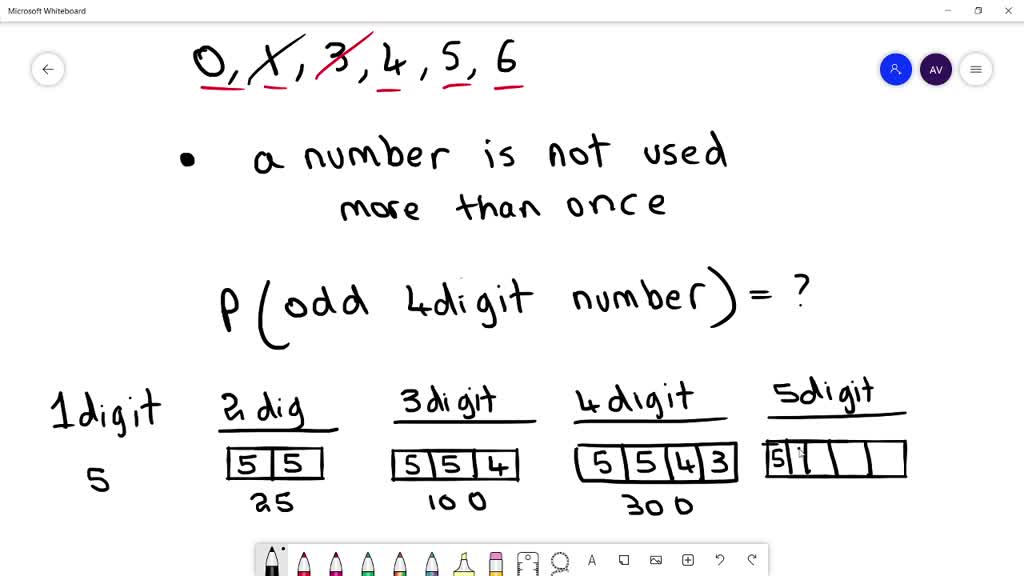 Microsoft Whiteboard
AV
0, 1, 3, 4, 5, 6
• a number is not used
more than once
P(odd 4digit number) = ?
1digit 2 dig 3digit 4 digit 5digit
5 5 5 5 5 4 5 5 4 3 5
5 25 100 300
A